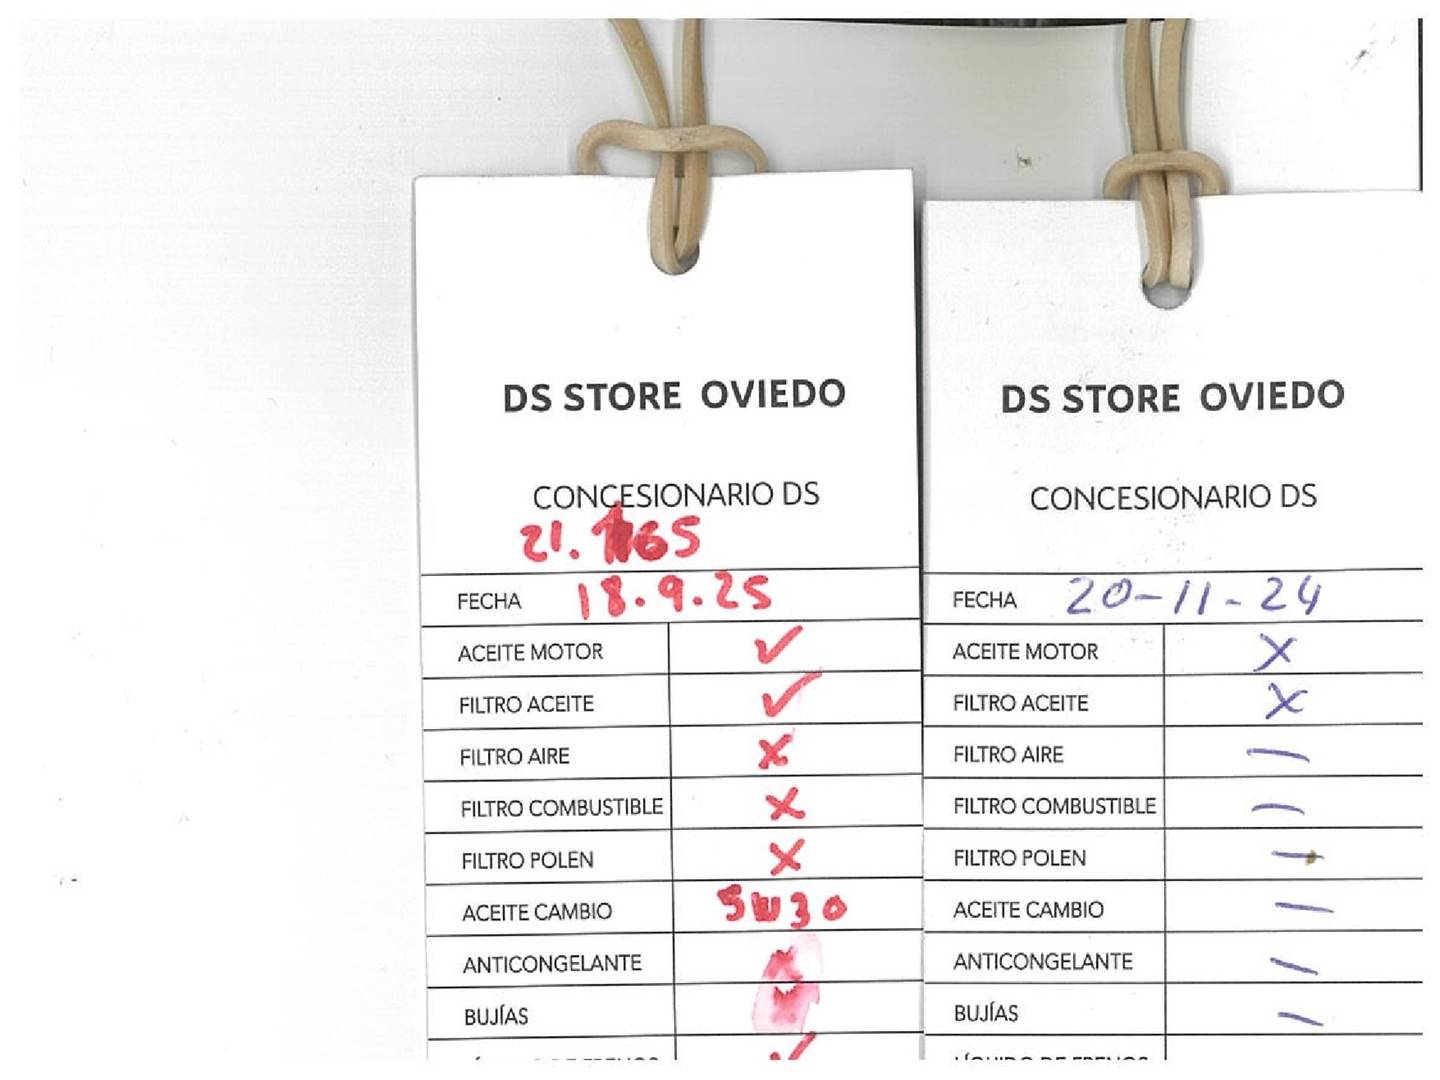 DS STORE OVIEDO
CONCESIONARIO DS
21.165
FECHA 18.9.25
ACEITE MOTOR ✓
FILTRO ACEITE ✓
FILTRO AIRE X
FILTRO COMBUSTIBLE X
FILTRO POLEN X
ACEITE CAMBIO 5W30
ANTICONGELANTE X
BUJÍAS X
DS STORE OVIEDO
CONCESIONARIO DS
FECHA 20-11-24
ACEITE MOTOR X
FILTRO ACEITE X
FILTRO AIRE —
FILTRO COMBUSTIBLE —
FILTRO POLEN —
ACEITE CAMBIO —
ANTICONGELANTE —
BUJÍAS —
LÍQUIDO DE FRENOS